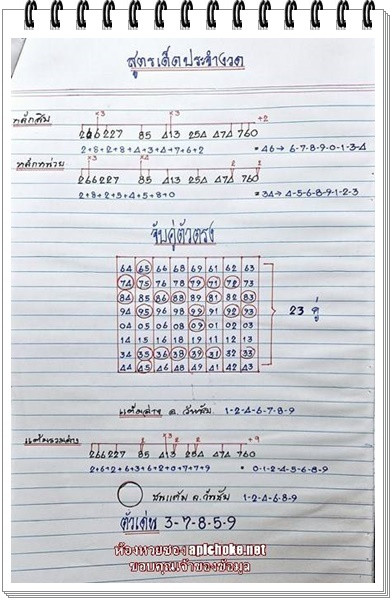 สูตรเด็ดประจำงวด
×3 ×3 +2
หลักสิบ 266227 85 413 254 474 760
2+8+2+8+4+3+4+7+6+2 *46→ 6-7-8-9-0-1-3-4
×3 ×4 2 2
หลักหน่วย 266227 85 413 254 474 760
2+8+2+5+4+5+8+0 *34→ 4-5-6-8-9-1-2-3
จับคู่ตัวตรง
64 65 68 69 61 62 63
74 75 78 79 71 72 73
84 85 86 88 89 81 82 83
94 95 98 99 91 92 93
04 05 08 09 01 02 03
14 15 18 19 11 12 13
34 35 36 38 39 31 32 33
44 45 48 49 41 42 43
23 คู่
แต้มล่าง อ.วันชัย. 1-2-4-6-7-8-9
2 ×3 2 2 +9
แต้มรวมล่าง 266227 85 413 254 474 760
2+6+2+6+3+6+2+0+7+7+9 *0-1-2-4-5-6-8-9
อ.วันชัย 1-2-4-6-8-9
ตัวเด่น 3-7-8-5-9
ห้องหวยซอง apichoke.net
ขอบคุณเจ้าของข้อมูล